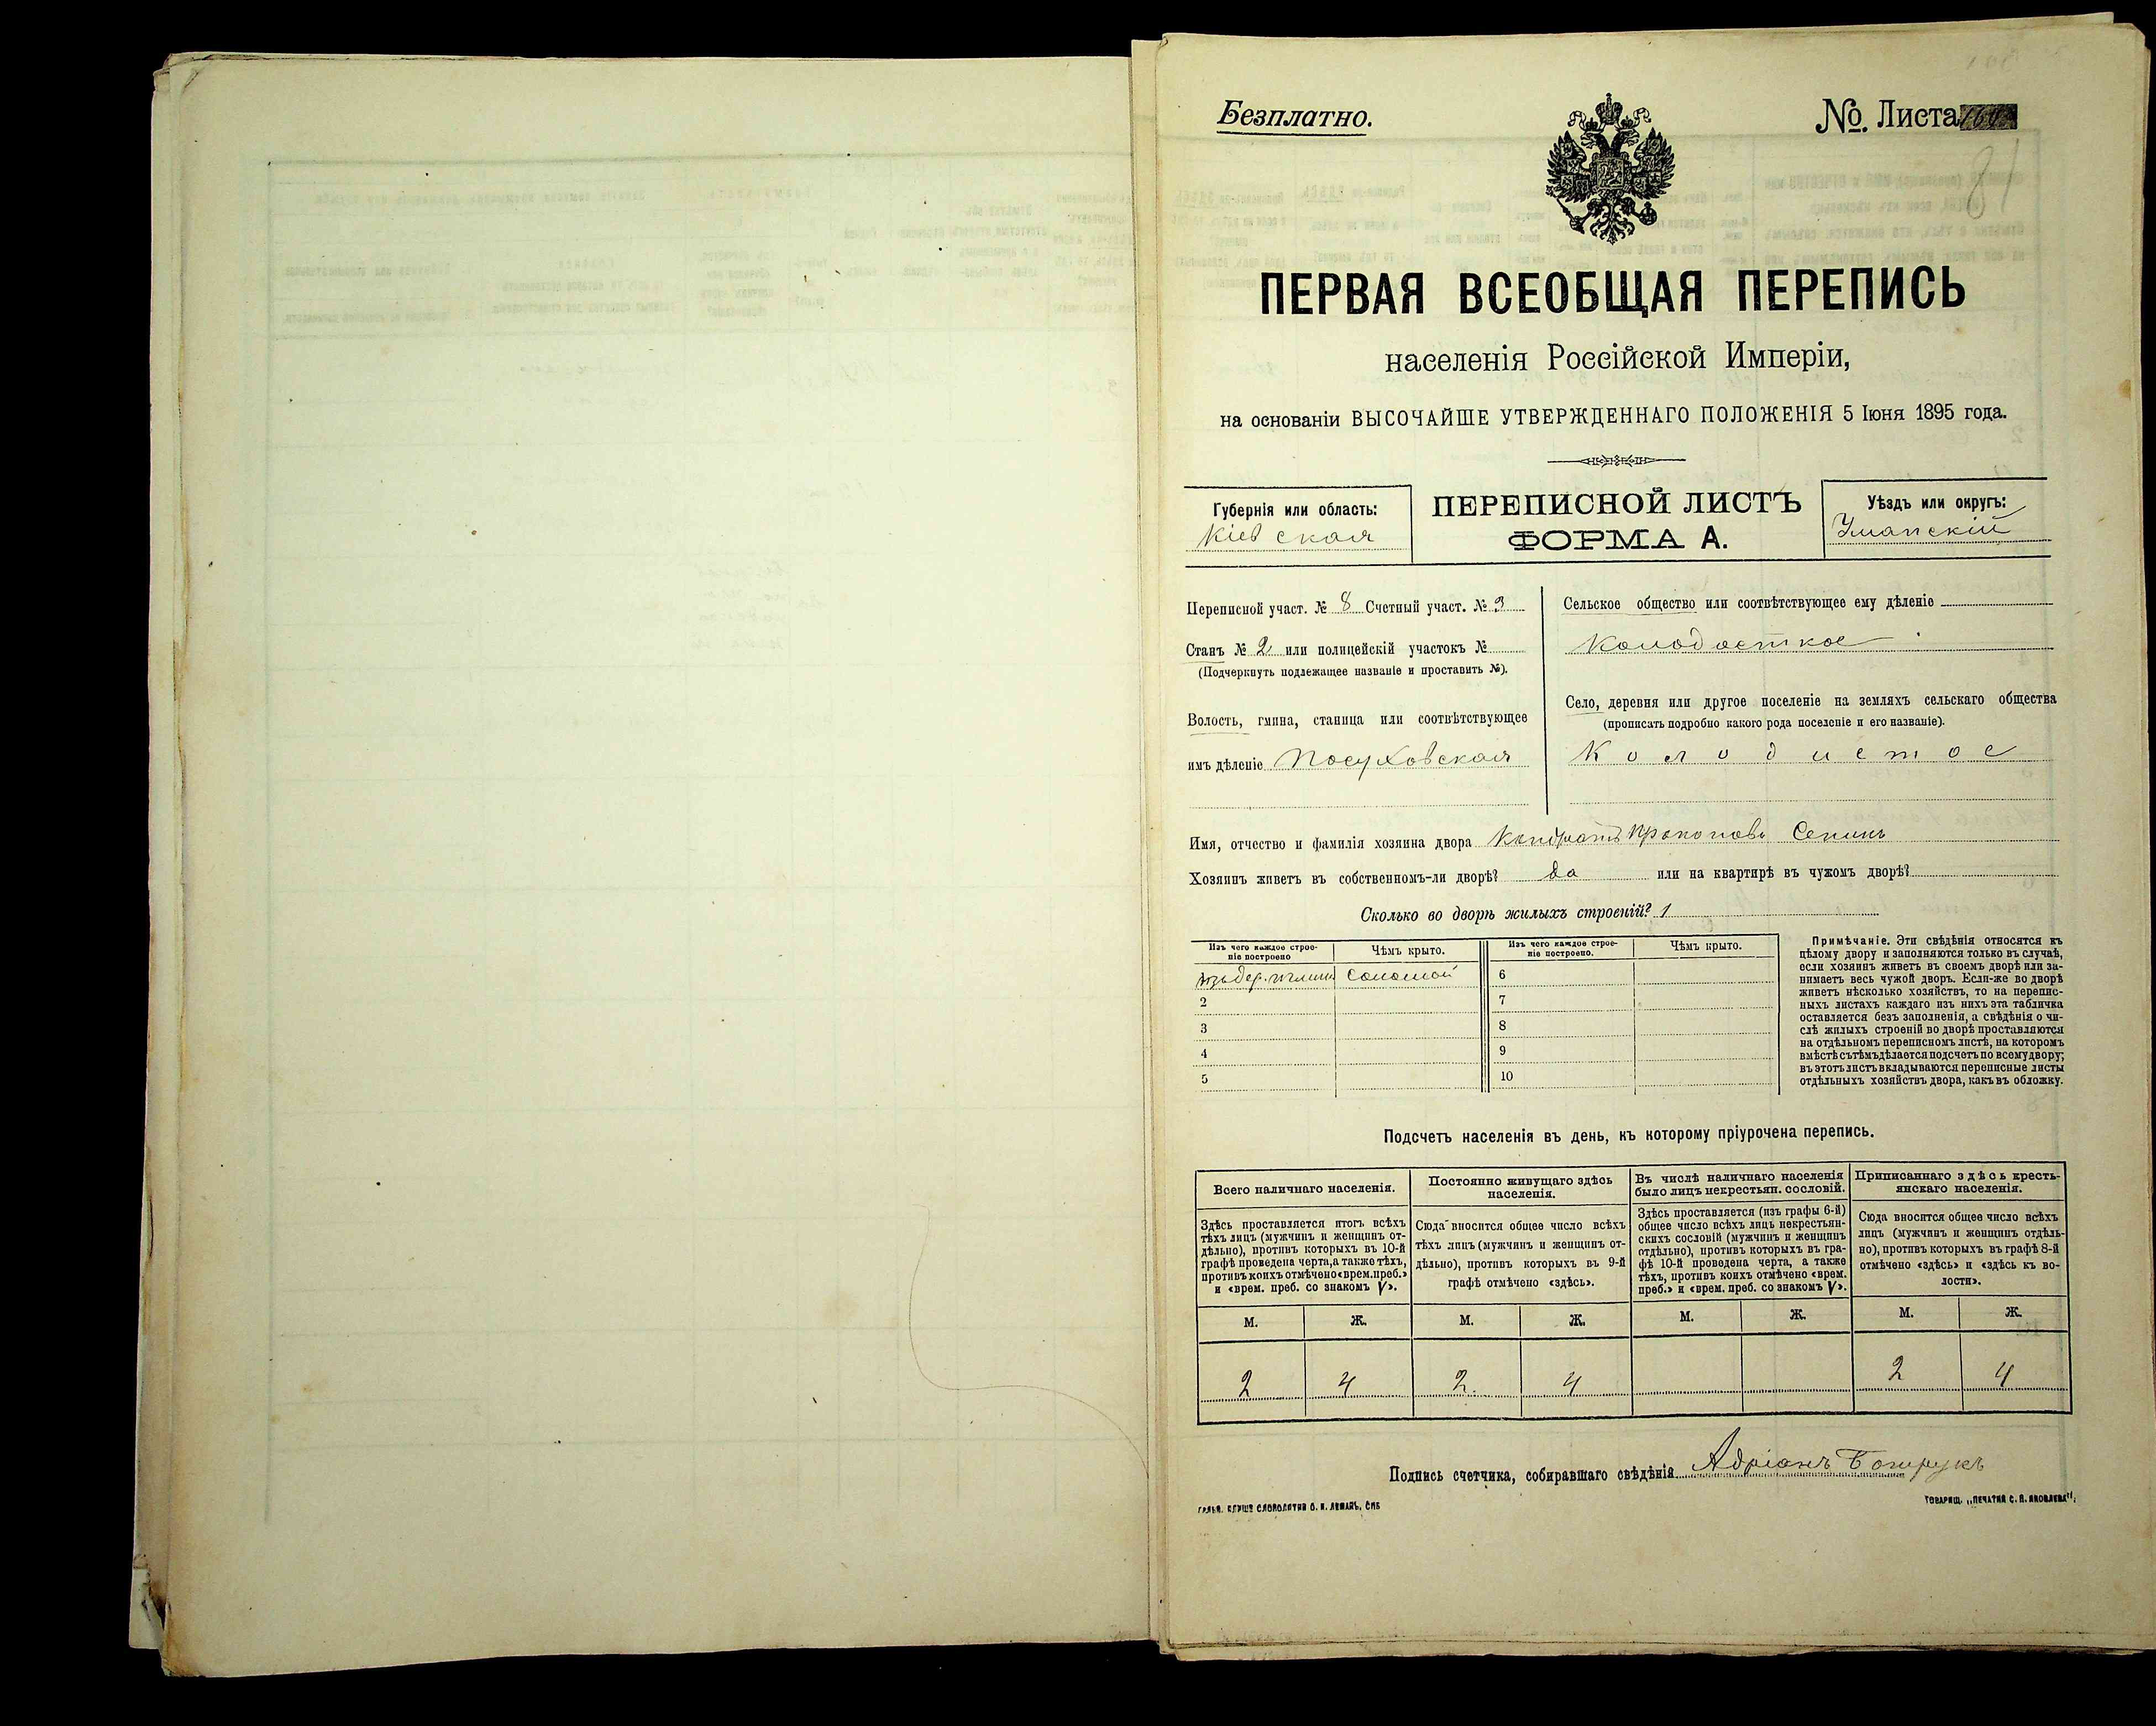 Безплатно.
№. Листа
81
ПЕРВАЯ ВСЕОБЩАЯ ПЕРЕПИСЬ
населенія Россійской Имперіи,
на основаніи ВЫСОЧАЙШЕ УТВЕРЖДЕННАГО ПОЛОЖЕНІЯ 5 Іюня 1895 года.
Губернія или область:
Кіевская
ПЕРЕПИСНОЙ ЛИСТЪ
ФОРМА А.
Уѣздъ или округъ:
Уманскій
Переписной участ. № 8 Счетный участ. № 3
Станъ № 2 или полицейскій участокъ №
(Подчеркнуть подлежащее названіе и проставить №).
Волость, гмина, станица или соотвѣтствующее
имъ дѣленіе Посуховская
Сельское общество или соотвѣтствующее ему дѣленіе
Колодосткое
Село, деревня или другое поселеніе на земляхъ сельскаго общества
(прописать подробно какого рода поселеніе и его названіе).
Колодистое
Имя, отчество и фамилія хозяина двора Кондратъ Прокоповъ
Хозяинъ живетъ въ собственномъ-ли дворѣ? да или на квартирѣ въ чужомъ дворѣ?
Сколько во дворѣ жилыхъ строеній? 1
Изъ чего каждое строе-
ніе построено
Чѣмъ крыто.
Изъ чего каждое строе-
ніе построено.
Чѣмъ крыто.
изъ дер. Соломой 6
2 7
3 8
4 9
5 10
Примѣчаніе. Эти свѣдѣнія относятся къ
цѣлому двору и заполняются только въ случаѣ,
если хозяинъ живетъ въ своемъ дворѣ или за-
нимаетъ весь чужой дворъ. Если-же во дворѣ
живетъ нѣсколько хозяйствъ, то на перепис-
ныхъ листахъ каждаго изъ нихъ эта табличка
оставляется безъ заполненія, а свѣдѣнія о чи-
слѣ жилыхъ строеній во дворѣ проставляются
на отдѣльномъ переписномъ листѣ, на которомъ
вмѣстѣ съ тѣмъ дѣлается подсчетъ по всему двору;
въ этотъ листъ вкладываются переписные листы
отдѣльныхъ хозяйствъ двора, какъ въ обложку.
Подсчетъ населенія въ день, къ которому пріурочена перепись.
Всего наличнаго населенія.
Здѣсь проставляется итогъ всѣхъ
тѣхъ лицъ (мужчинъ и женщинъ от-
дѣльно), противъ которыхъ въ 10-й
графѣ проведена черта, а также тѣхъ,
противъ коихъ отмѣчено «врем. преб.»
и «врем. преб. со знакомъ V».
Постоянно живущаго здѣсь
населенія.
Сюда вносится общее число всѣхъ
тѣхъ лицъ (мужчинъ и женщинъ от-
дѣльно), противъ которыхъ въ 9-й
графѣ отмѣчено «здѣсь».
Въ числѣ наличнаго населенія
было лицъ некрестьян. сословій.
Здѣсь проставляется (изъ графы 6-й)
общее число всѣхъ лицъ некрестьян-
скихъ сословій (мужчинъ и женщинъ
отдѣльно), противъ которыхъ въ гра-
фѣ 10-й проведена черта, а также
тѣхъ, противъ коихъ отмѣчено «врем.
преб.» и «врем. преб. со знакомъ V».
Приписаннаго здѣсь кресть-
янскаго населенія.
Сюда вносится общее число всѣхъ
лицъ (мужчинъ и женщинъ отдѣль-
но), противъ которыхъ въ графѣ 8-й
отмѣчено «здѣсь» и «здѣсь къ во-
лости».
М. Ж. М. Ж. М. Ж. М. Ж.
2 4 2. 4 2 4
Подпись счетчика, собиравшаго свѣдѣнія Адріанъ
ГАЛЬВ. КЛИШЕ СЛОВОЛИТНИ О. И. ЛЕМАНЪ, СПБ
ТОВАРИЩ. „ПЕЧАТНЯ С. П. ЯКОВЛЕВА".